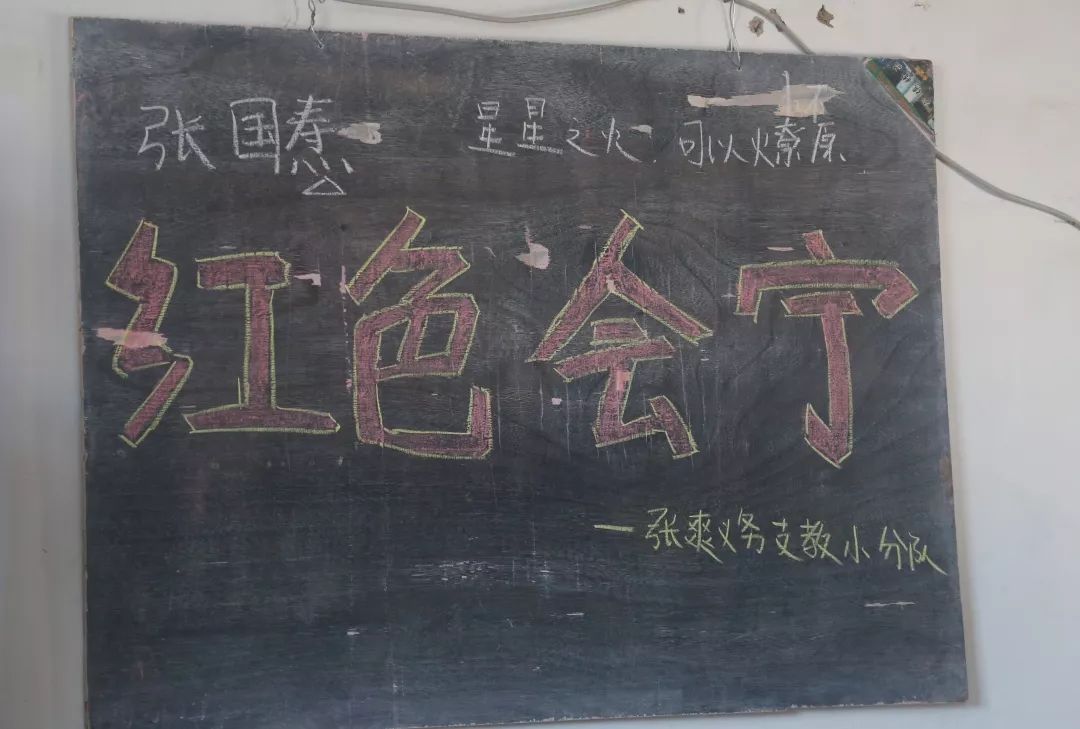 张国焘 星星之火,可以燎原
红色会宁
一张爽义务支教小分队